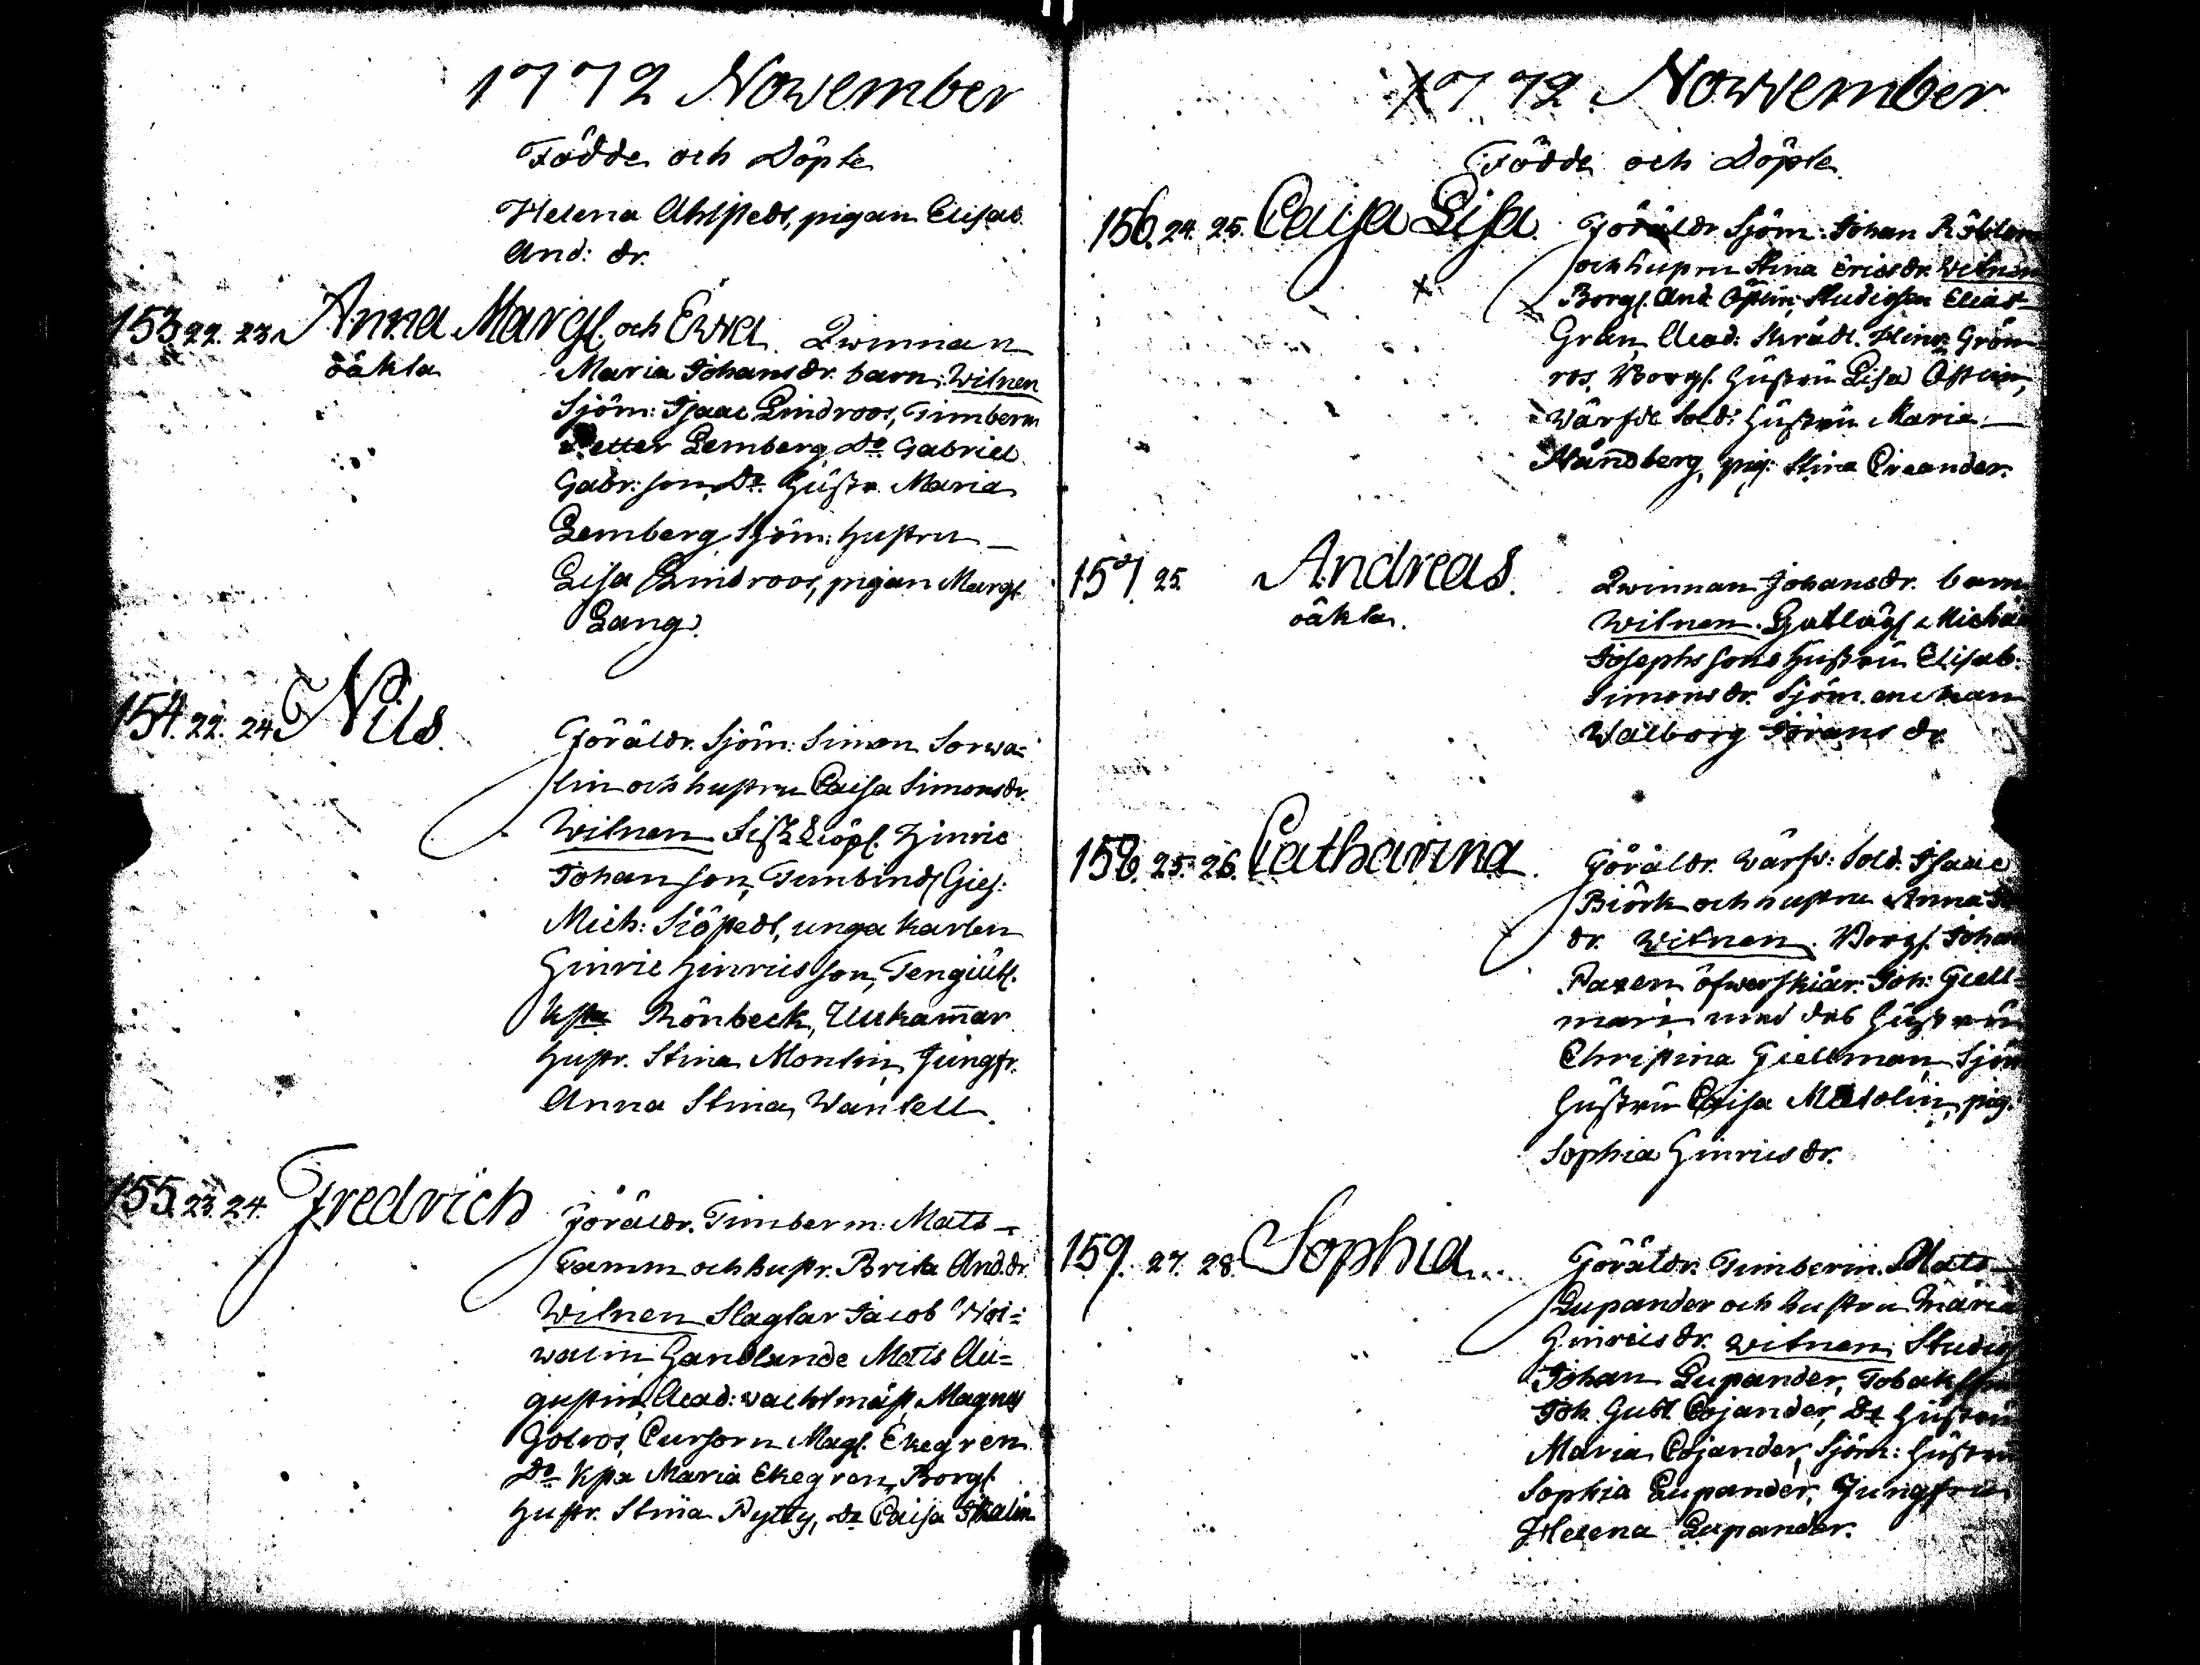 1772 November
Födde och Döpte
Helena Ahlstedt, pigan Elisab.
And: dr.
153. 22. 23. Anna Margt. och Ewa. Qwinnan
oäkta Maria Johansdr. barn. Witnen
Sjöm: Isaac Lindroos, Timberm
Petter Lemberg Do Gabriel
Gabr:son, Do. hustr. Maria
Lemberg Sjöm: hustru
Lisa Lindroos, pigan Margt
Lang.
154. 22. 24. Nils. Föräldr. Sjöm: Simon Sorwa=
lin och hustru Caisa Simonsdr.
Witnen Hinric
Johanson,
Mich: Siöstedt, unga karlen
Hinric Hinricsson,
Rönbeck,
hustr. Stina Monlin, Jungfr.
Anna Stina Wansell.
155. 23. 24. Fredrich Föräldr. Timberm: Mats
Tamm och hustr. Brita And.dr.
Witnen Slagtar Jacob Woi=
walin, Handlande Mats Au=
gustin, Acad: wachtmäst Magnus
Golros, Cursorn Magl. Ekegren
Do Maria Ekegren, Borgl.
hustr. Stina Pytty, Do Caisa
1772 November
Födde och Döpte
156. 24. 25. Caisa Lisa. Föräldr Sjöm: Johan
och hustru Stina Ericsdr. Witnen
Borgl. And: Östlin, Studiosen Elias
Gran, Acad: Skrädd. Hinr: Grön
ros, Borgl. hustru Lisa Östlin,
Wärfde Sold: hustru Maria
Strandberg, pig: Stina Creander.
157. 25. Andreas. Qwinnan Johansdr. barn
oäkta. Witnen. Michael
Josephssons hustru Elisab:
Simonsdr. Sjöm. enckan
Walborg Jöransdr
158. 25. 26. Catharina. Föräldr. Wärfv: Sold. Isaac
Biörk och hustru Anna
dr. Witnen. Borgl. Johan
Paxen öfwerskiär: Joh: Giell=
man med dess hustru
Christina Giellman, Sjöm
hustru Caisa Matolin, pig.
Sophia Hinricsdr.
159. 27. 28. Sophia. Föräldr. Timberm. Mats
Lupander och hustru Maria
Hinricsdr. Witnen. Studios
Johan Lupander,
Joh. Gust. Cojander, Do hustru
Maria Cojander, Sjöm: hustru
Sophia Lupander, Jungfru
Helena Lupander.